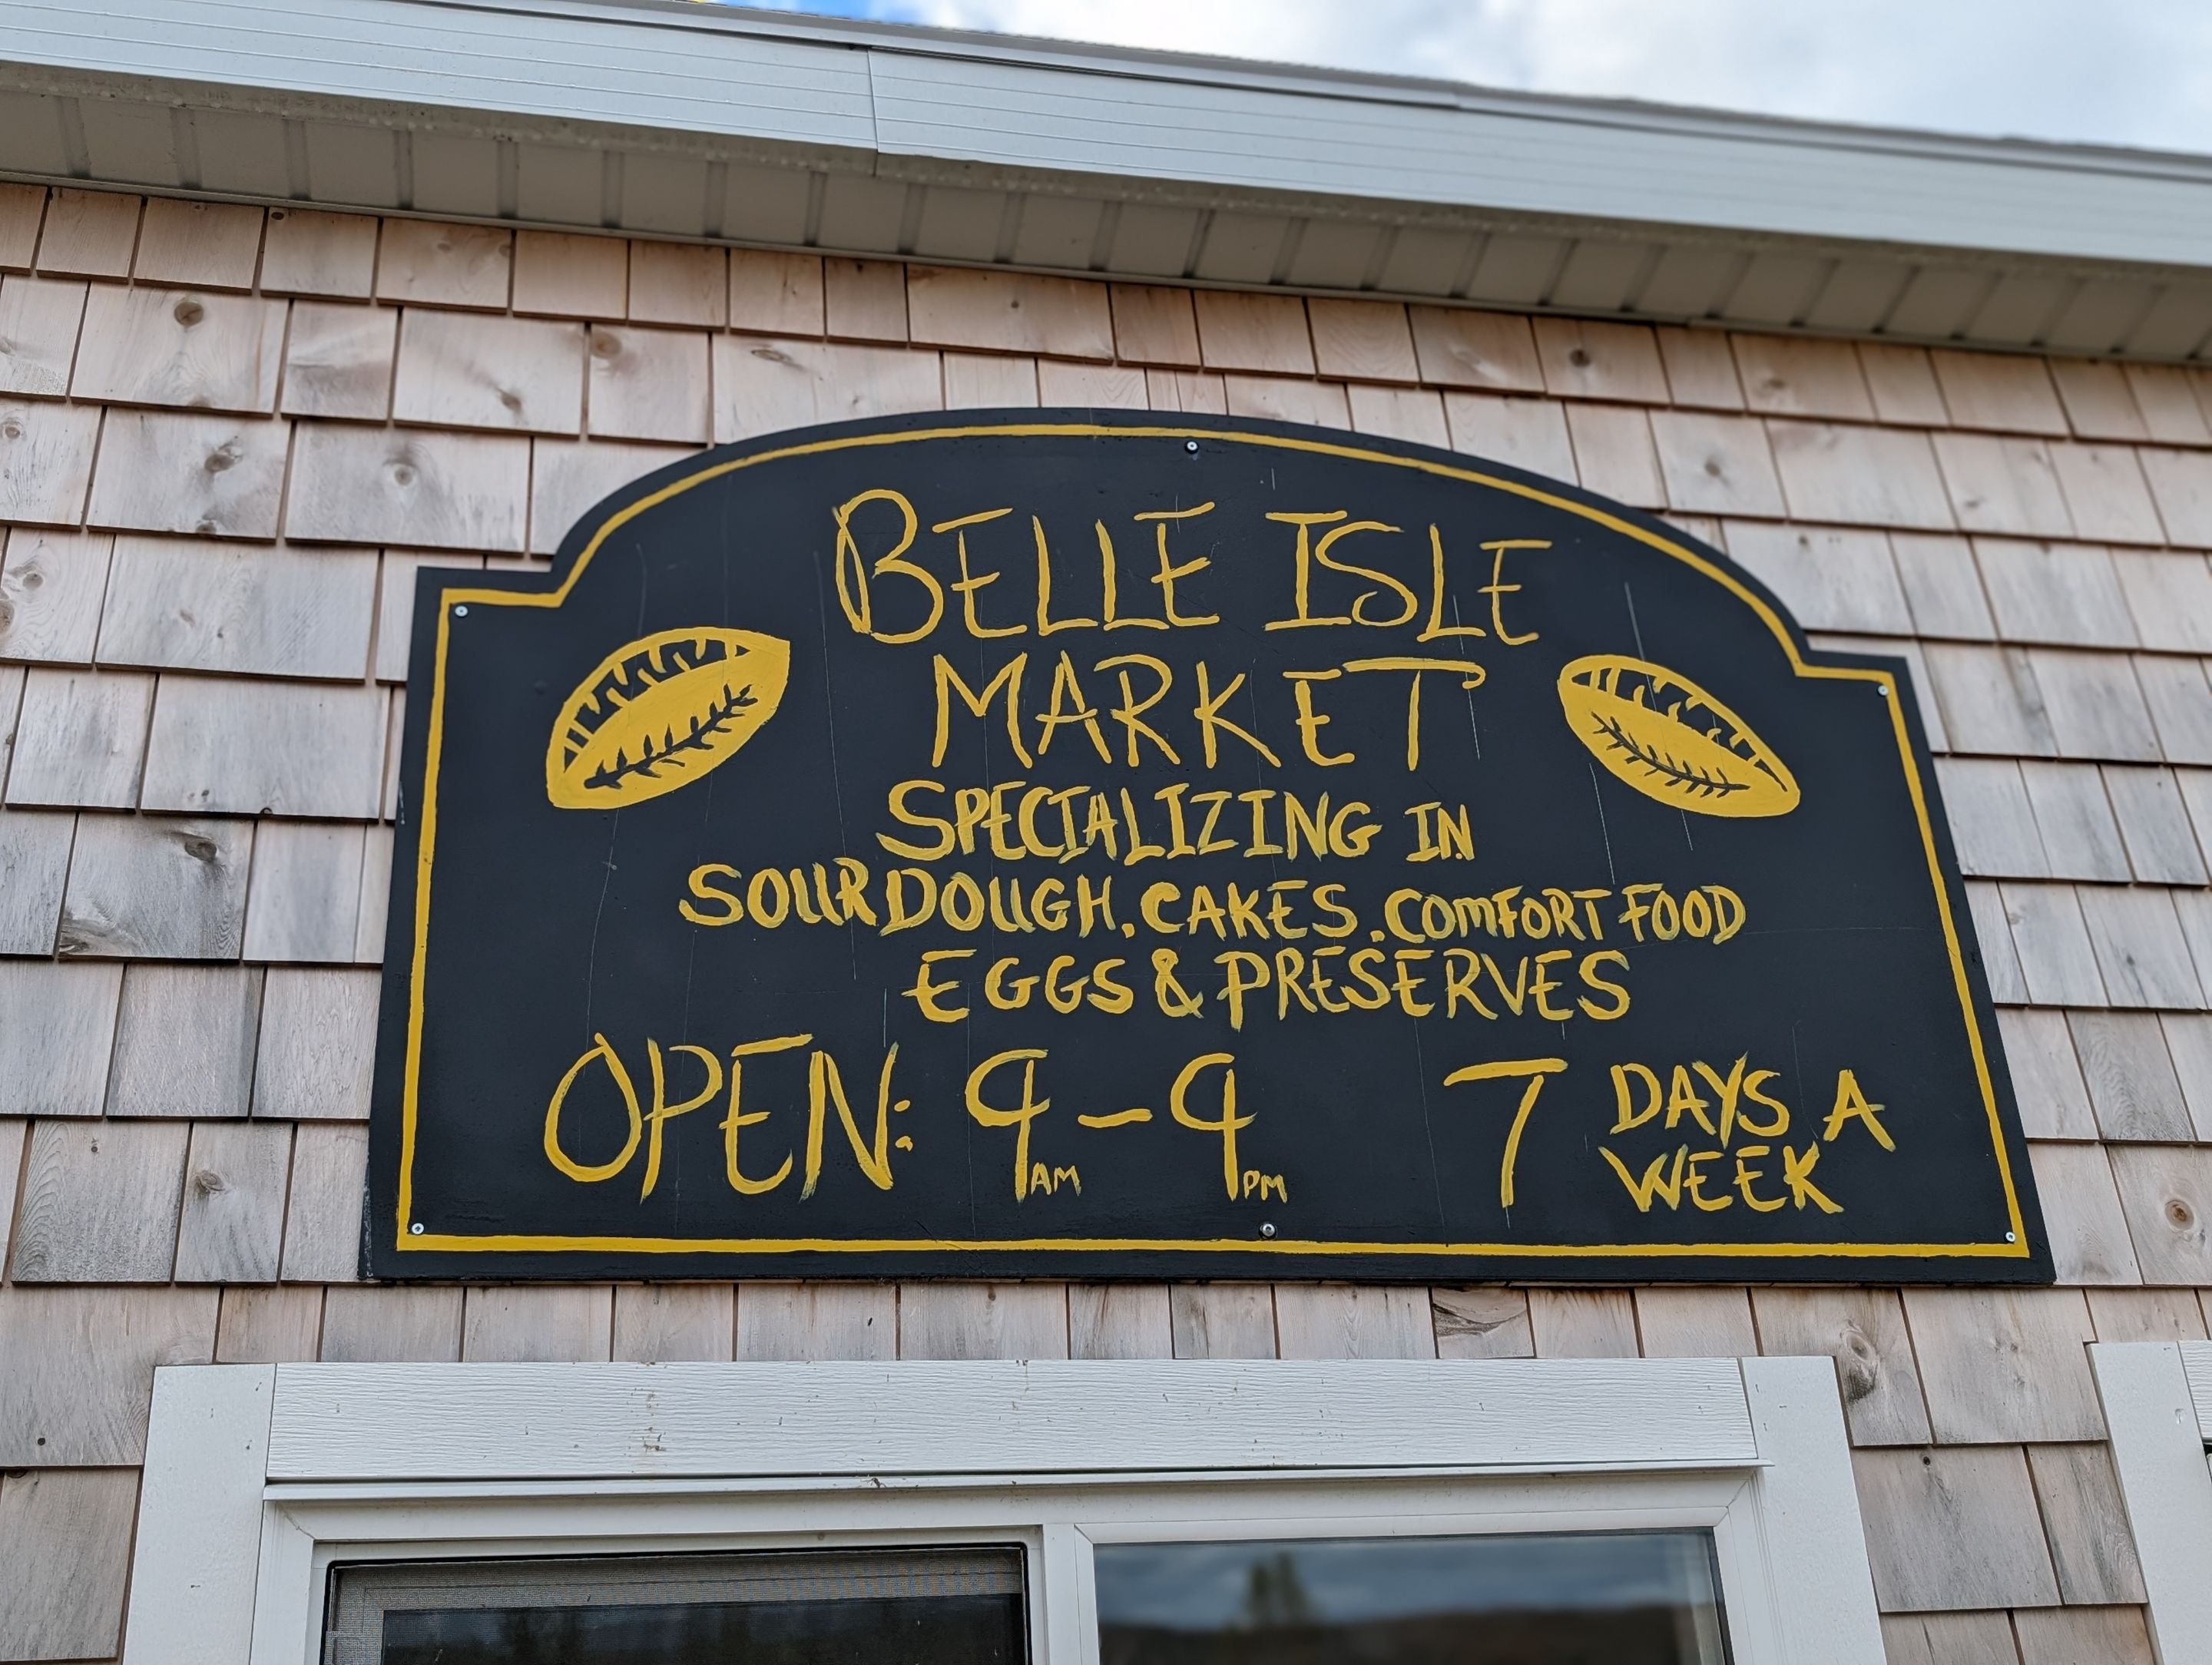 BELLE ISLE
MARKET
SPECIALIZING IN
SOURDOUGH. CAKES. COMFORT FOOD
EGGS & PRESERVES
OPEN: 9AM - 9PM 7 DAYS A
WEEK